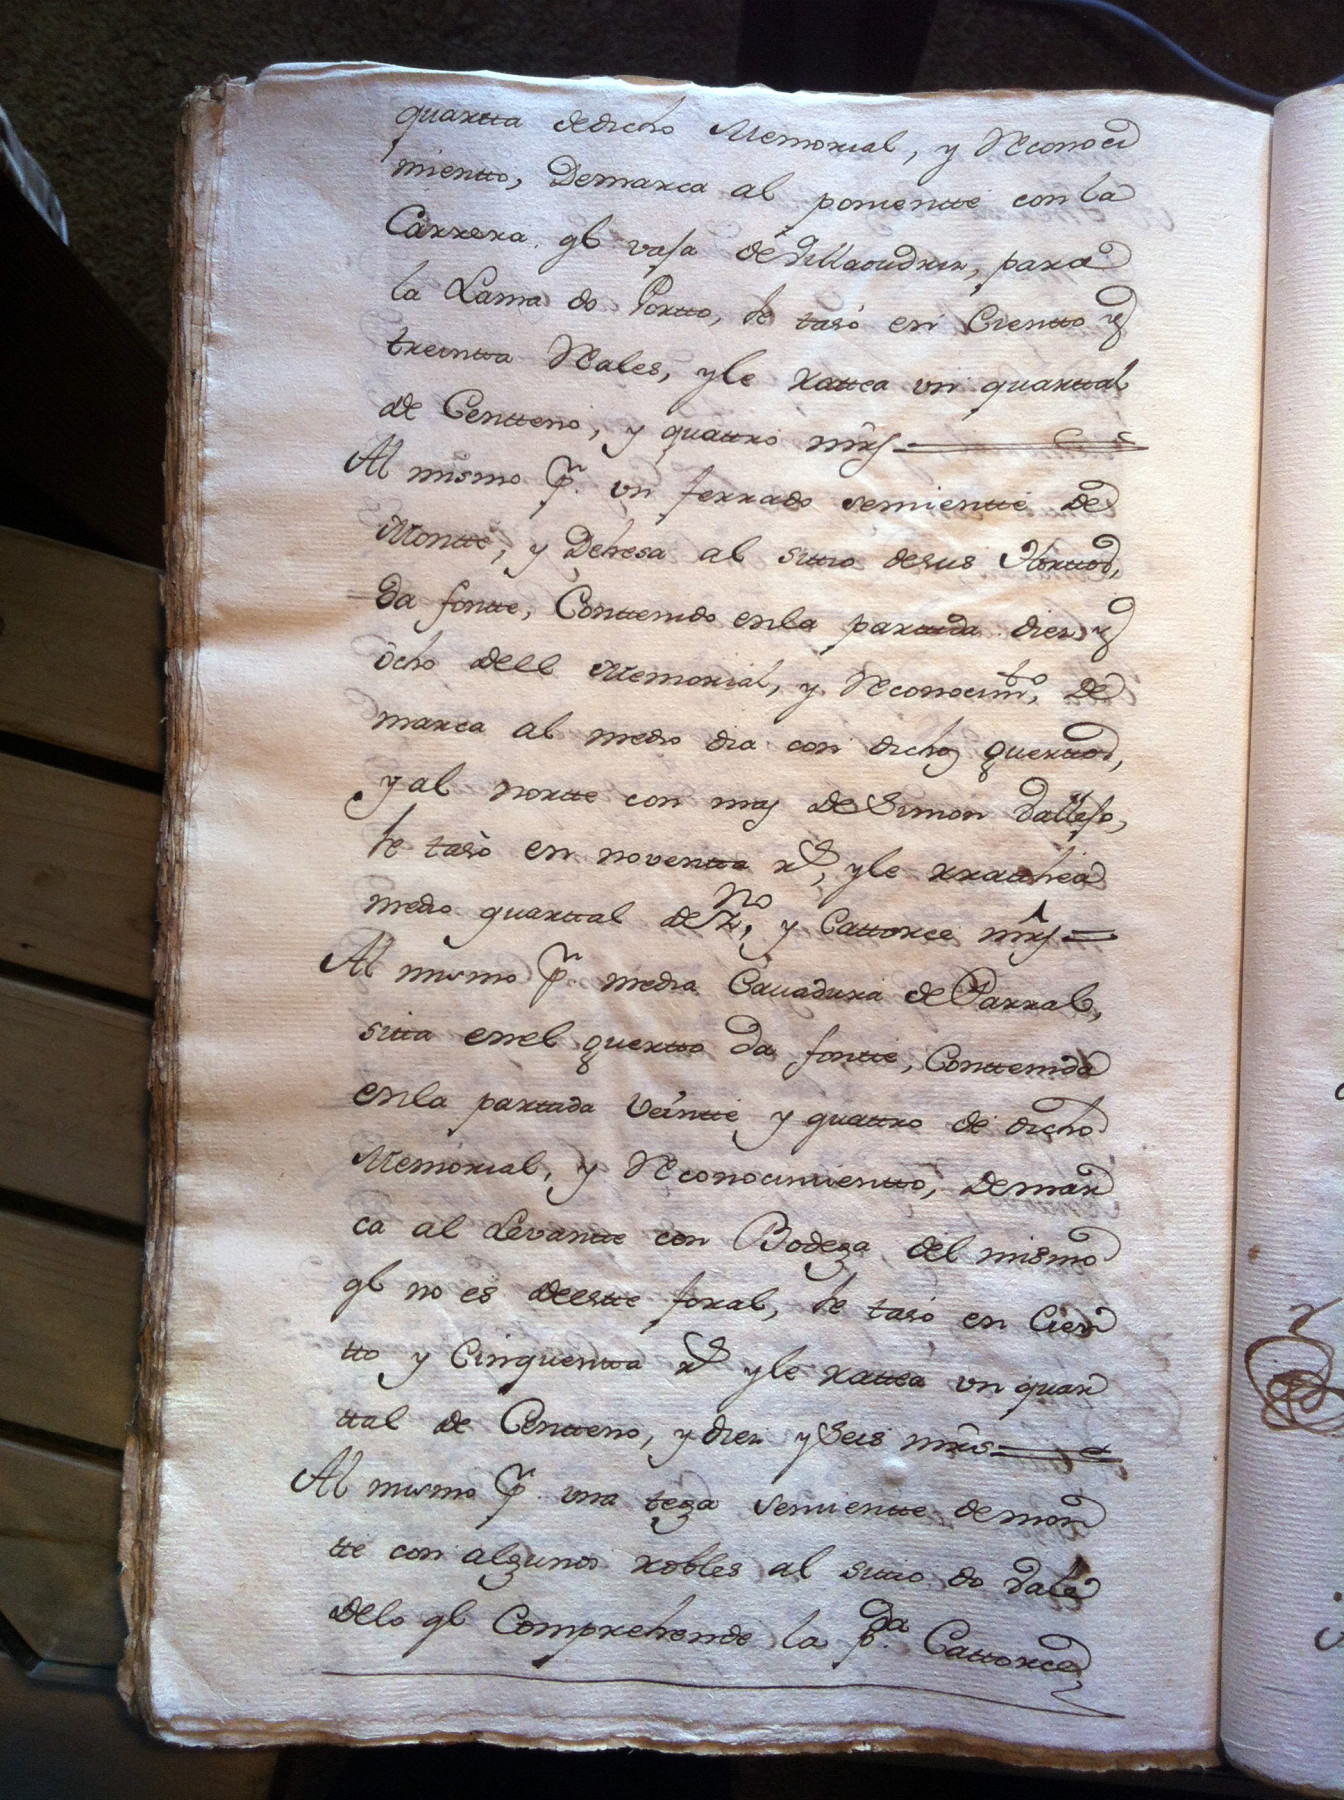 quartta dedicho Memorial, y Reconoci
mientto, Demarca al ponientte con la
Carrera. qe vaja de Villaoudriz, para
la Lama do Portto, se tasó en Cientto y
treintta Reales, y le rattea un quarttal
de Centteno, y quattro mrs
Al mismo pr. un ferrado semientte de
Montte, y Dehesa al sittio desus Horttos,
Da fontte, Conttenido enla parttida diez y
ócho dell Memorial, y Reconocimto, De
marca al medio dia con dichos guerttos,
y al nortte con mas de Simon Vallejo,
se tasó en noventta rs, y le rratthea
medio quarttal de Zno, y Cattorce mrs
Al mismo pr. media Cauadura de Parral,
sitta enel guertto Da fontte, Conttenida
enla parttida Veintte y quattro de dicho
Memorial, y Reconocimientto, demar
ca al Levantte con Bodega del mismo
qe no es deestte foral, se tasó en Cien
tto y Cinquentta rs y le rattea un quar
ttal de Centteno, y diez y Seis mrs
Al mismo pr. una tega semientte de mon
tte con algunos robles al sittio do Vale
delo qe Comprehende la pda Cattorce